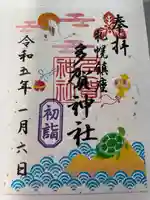 奉拝
札幌鎮座
多賀神社
初詣
令和五年一月六日